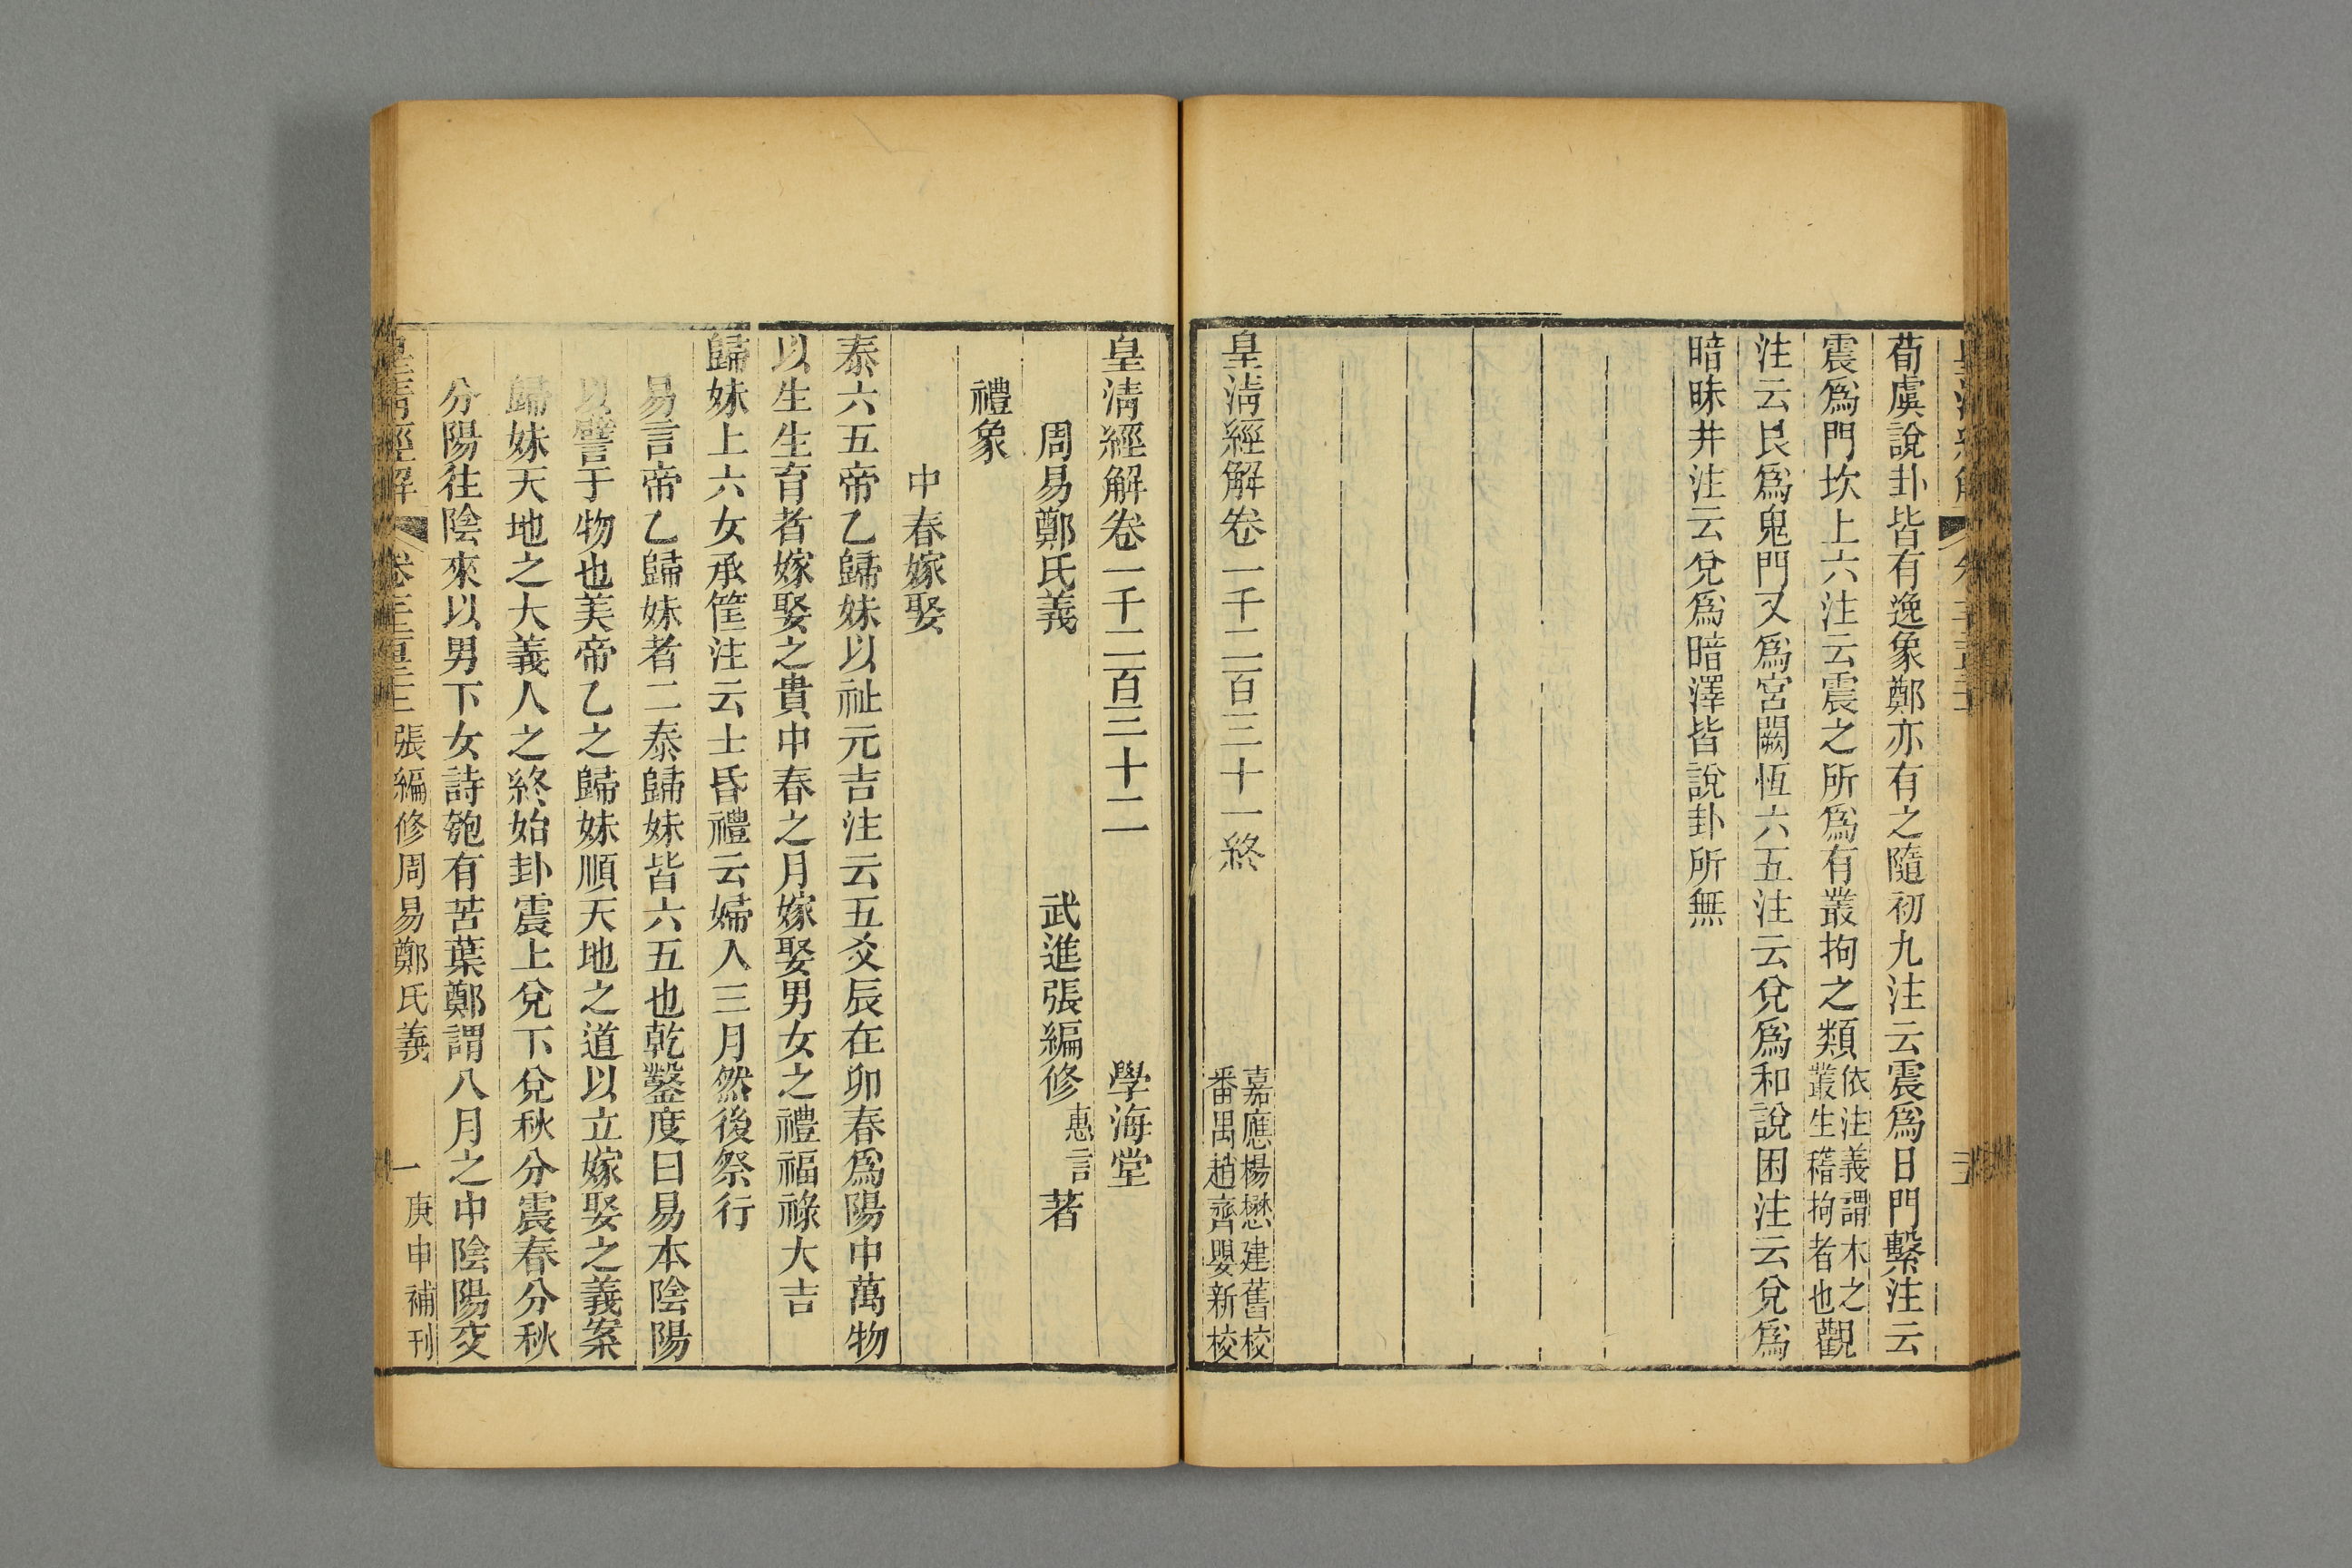 荀虞說卦皆有逸象鄭亦有之隨初九注云震爲日門繫注云
震爲門坎上六注云震之所爲有叢拘之類依注義謂木之叢生穭拘者也觀
注云艮爲鬼門又爲宮闕恆六五注云兌爲和說困注云兌爲
暗昧井注云兌爲暗澤皆說卦所無
皇淸經解卷一千二百三十一終
嘉應楊懋建舊校
番禺趙齊嬰新校
皇淸經解卷一千二百三十二
學海堂
周易鄭氏義
武進張編修惠言著
禮象
中春嫁娶
泰六五帝乙歸妹以祉元吉注云五爻辰在卯春爲陽中萬物
以生生育者嫁娶之貴中春之月嫁娶男女之禮福祿大吉
歸妹上六女承筐注云士昏禮云婦人三月然後祭行
易言帝乙歸妹者二泰歸妹皆六五也乾鑿度曰易本陰陽
以譬于物也美帝乙之歸妹順天地之道以立嫁娶之義案
歸妹天地之大義人之終始卦震上兌下兌秋分震春分秋
分陽往陰來以男下女詩匏有苦葉鄭謂八月之中陰陽交
皇淸經解
張編修周易鄭氏義
一
庚申補刊